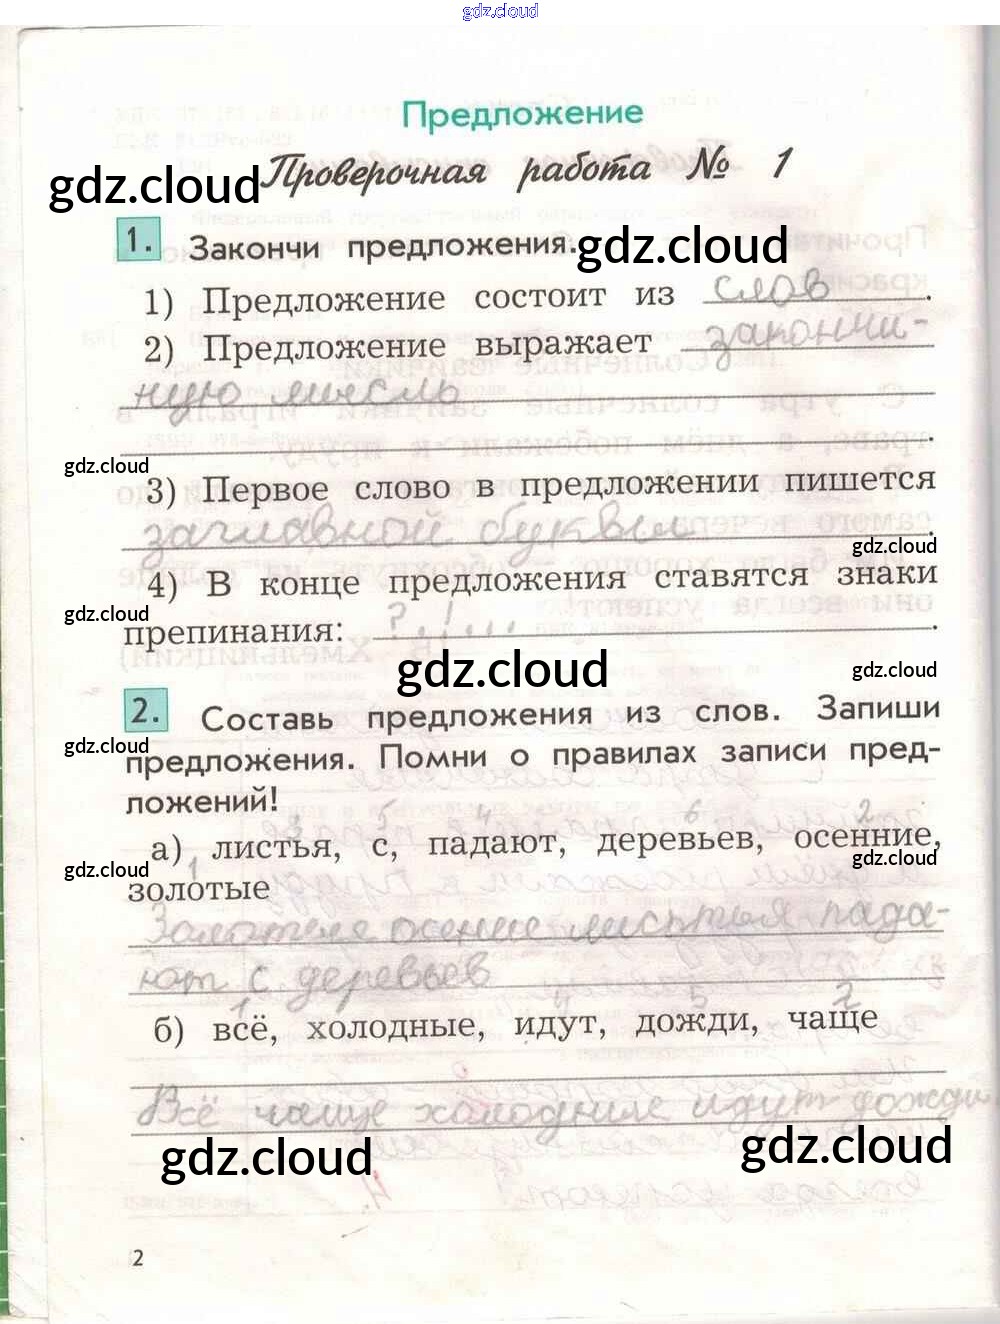 gdz.cloud
Предложение
gdz.cloud Проверочная работа № 1
1. Закончи предложения. gdz.cloud
1) Предложение состоит из слов.
2) Предложение выражает закончи-
ную мысль
.
gdz.cloud
3) Первое слово в предложении пишется
заглавной буквы.
gdz.cloud
4) В конце предложения ставятся знаки
gdz.cloud
препинания: ? . ! ... .
gdz.cloud gdz.cloud
2. Составь предложения из слов. Запиши
gdz.cloud
предложения. Помни о правилах записи пред-
ложений!
3 5 4 6 2
а) листья, с, падают, деревьев, осенние,
gdz.cloud 1 gdz.cloud
золотые
Золотые осение листья пада-
ют с деревьев
1 4 5 2
б) всё, холодные, идут, дожди, чаще
Всё чаще холодные идут дожди
gdz.cloud gdz.cloud
2